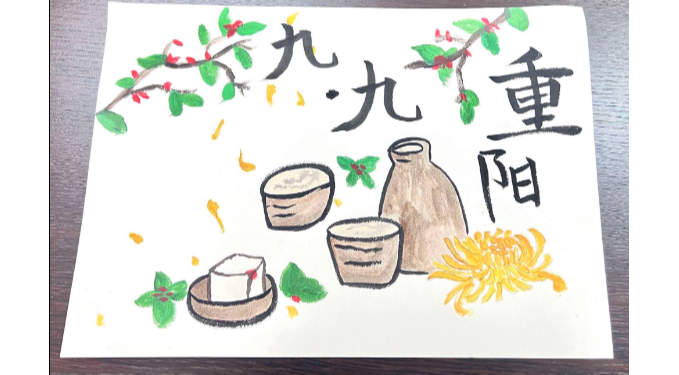 九·九
重阳